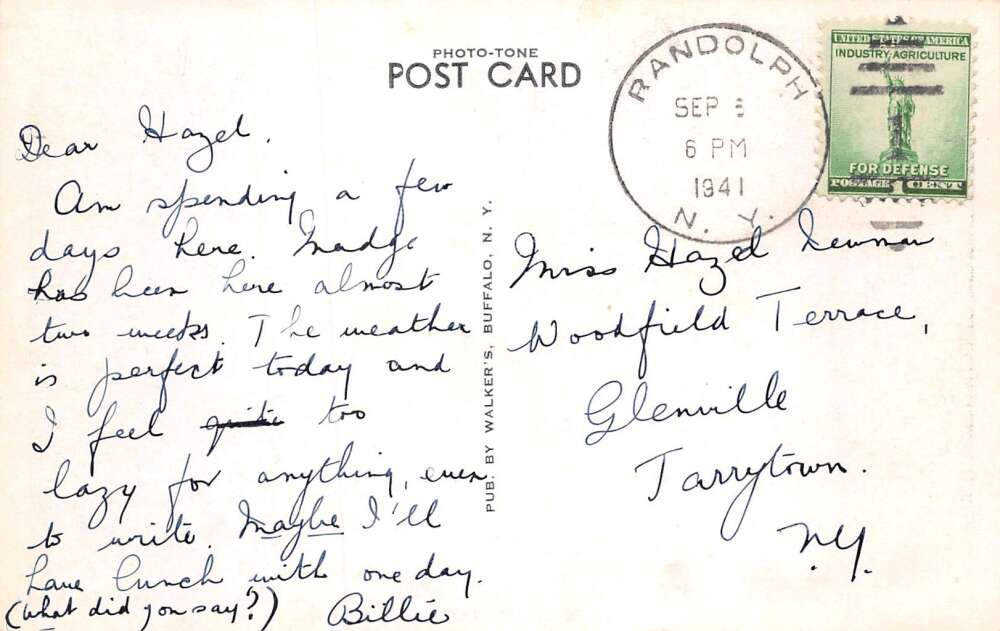 PHOTO-TONE
POST CARD
RANDOLPH
SEP 6
6 PM
1941
N. Y.
UNITED STATES OF AMERICA
INDUSTRY·AGRICULTURE
FOR DEFENSE
POSTAGE 1 CENT
Dear Hazel,
Am spending a few
days here. Madge
has been here almost
two weeks. The weather
is perfect today and
I feel quite too
lazy for anything, even
to write. Maybe I'll
have lunch with one day.
(What did you say?) Billie
PUB. BY WALKER'S, BUFFALO, N. Y.
Miss Hazel Newman
Woodfield Terrace,
Glenville
Tarrytown.
N.Y.